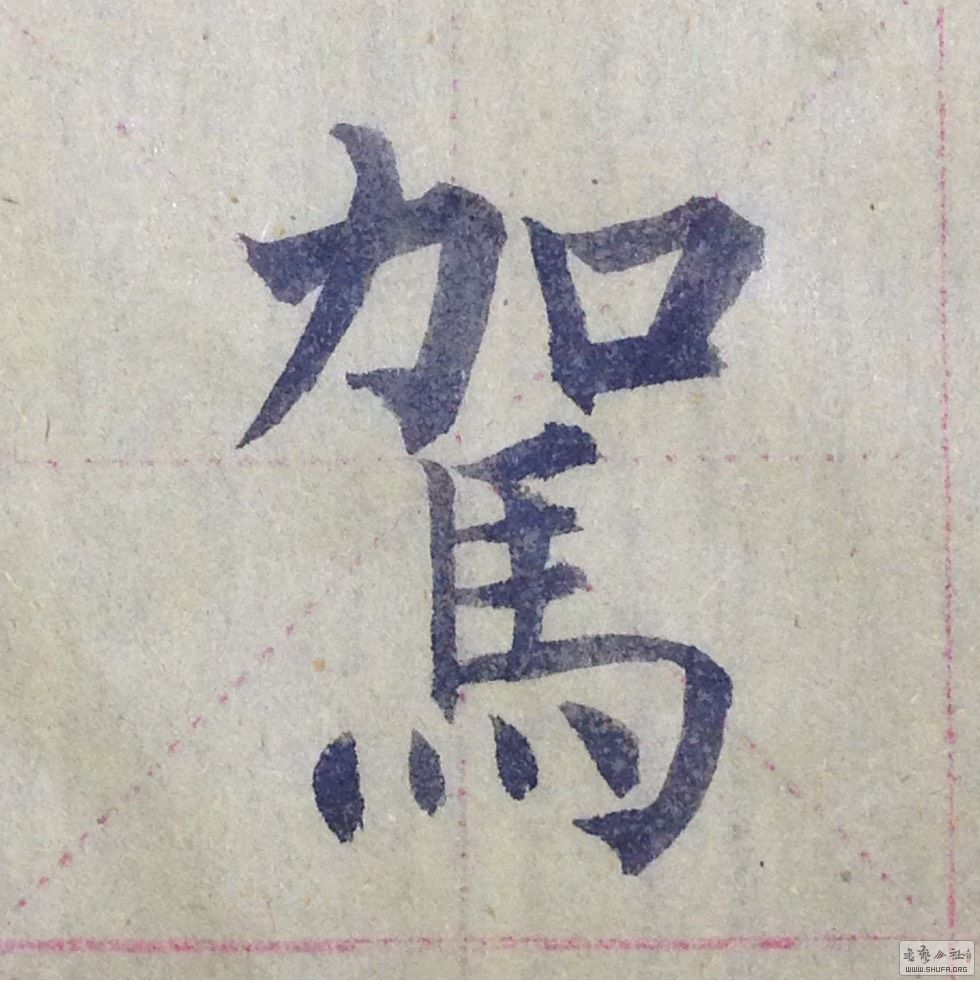 駕
书艺公社
WWW.SHUFA.ORG